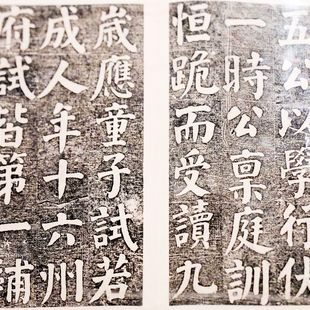 五公以學行伏
一時公稟庭訓
恒跪而受讀九
歲應童子試若
成人年十六州
府試皆第一補